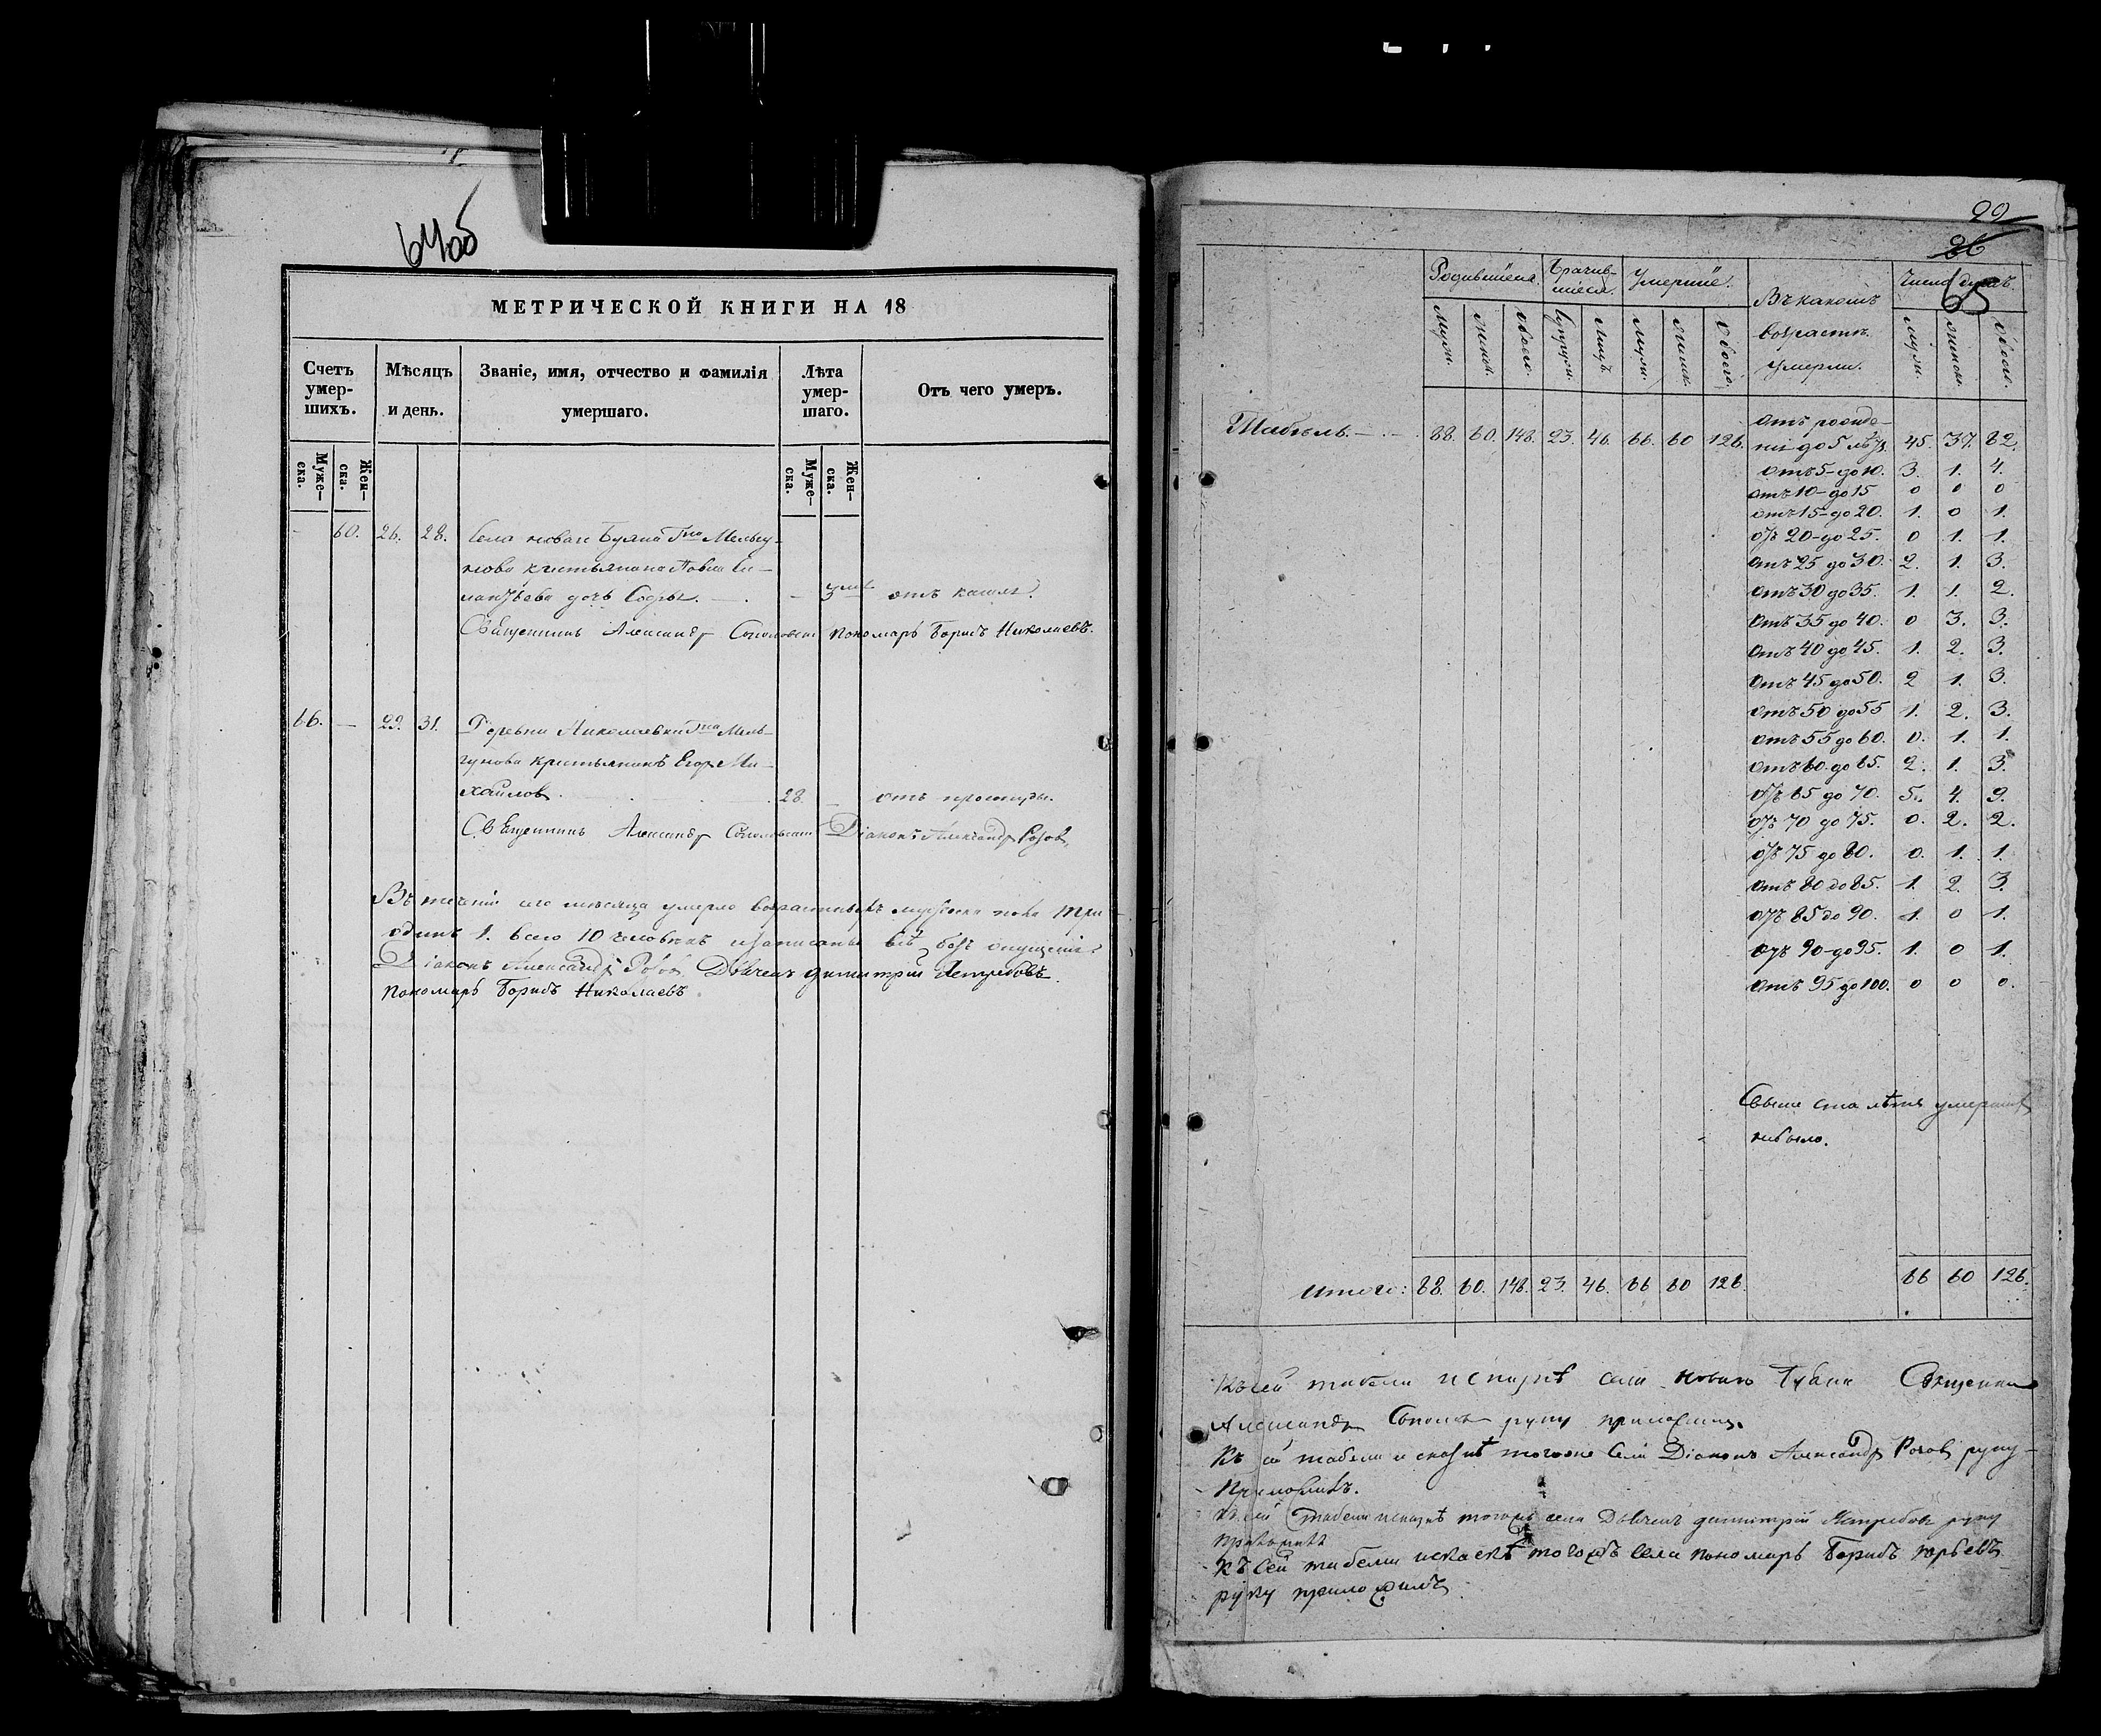 64об
МЕТРИЧЕСКОЙ КНИГИ НА 18
Счетъ умер-шихъ.
Мѣсяцъ и день.
Званіе, имя, отчество и фамилія умершаго.
Лѣта умер-шаго.
Отъ чего умеръ.
Муже-ска.
Жен-ска.
Муже-ска.
Жен-ска.
60. 26. 28. Села новаго Буяна Гна Мельгу-
нова крестьянина Павла
дочь Софья. — 3 отъ кашля.
Священникъ Александр Соколовскій пономарь Борисъ Николаевъ.
66. — 29. 31. Деревни Николаевки Гна Мель-
гунова крестьянинъ Егоръ Ми-
хайловъ. 28. — отъ простуды.
Священникъ Александр Соколовскій Діаконъ Александръ Розовъ
Въ теченіи сего месяца умерло
одинъ 1. всего 10 человѣкъ и записаны всѣ безъ опущенія
Діаконъ Александръ Розовъ. Дьячекъ Димитрій Ястребовъ.
пономарь Борисъ Николаевъ
22
26
65
Родившіеся. Брачив-шіеся. Умершіе. Въ какомъ возрастѣ умерли. Число душъ.
мужи. женск. обоего. супруж. лицъ. мужи. женск. обоего. мужи. женск. обоего.
Табель. 88. 60. 148. 23. 46. 66. 60 126.
отъ рожде-
нія до 5 лѣтъ 45. 37. 82.
отъ 5 до 10. 3. 1. 4.
отъ 10 до 15 0 0 0
отъ 15 до 20. 1. 0 1.
отъ 20 до 25. 0 1. 1.
отъ 25 до 30. 2. 1. 3.
отъ 30 до 35. 1. 1. 2.
отъ 35 до 40. 0 3. 3.
отъ 40 до 45. 1. 2. 3.
отъ 45 до 50. 2 1. 3.
отъ 50 до 55 1. 2. 3.
отъ 55 до 60. 0. 1. 1.
отъ 60 до 65. 2. 1. 3.
отъ 65 до 70. 5. 4. 9.
отъ 70 до 75. 0. 2. 2.
отъ 75 до 80. 0. 1. 1.
отъ 80 до 85. 1. 2. 3.
отъ 85 до 90. 1. 0 1.
отъ 90 до 95. 1. 0 1.
отъ 95 до 100. 0 0 0.
Свыше ста лѣтъ умершихъ
небыло.
Итого: 88. 60. 148. 23. 46. 66 60 126. 66 60 126.
Къ сей табели и сказкѣ села новаго Буяна Священникъ
Александръ руку приложилъ.
Къ сей табели и сказкѣ тогоже села Діаконъ Александръ Розовъ руку
приложилъ.
Къ сей табели и сказкѣ тогожъ села Дьячекъ Димитрій Ястребовъ руку
приложилъ
Къ сей табели и сказкѣ тогожъ села пономарь Борисъ Юрьевъ
руку приложилъ